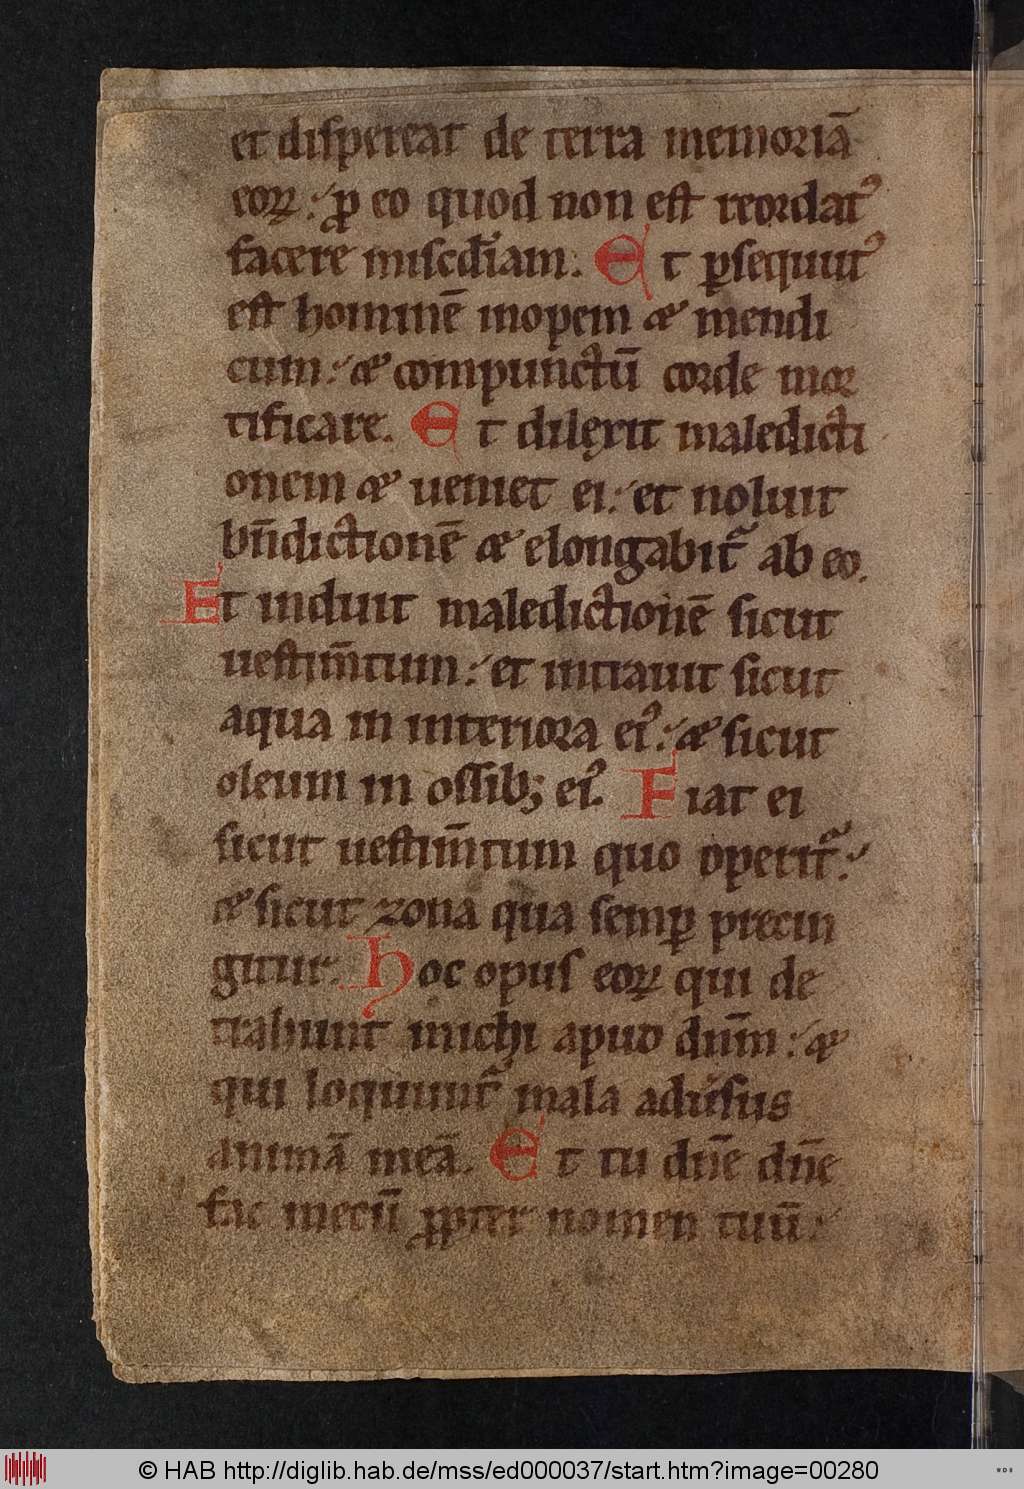 et dispereat de terra memoriā
eoꝝ: ꝓ eo quod non est recordatꝰ
facere misc̄diam. Et ꝑsequutꝰ
est hominē inopem & mendi
cum: & compunctū corde mor
tificare. Et dilęxit maledicti
onem & ueniet ei: et noluit
bn̄dictionē & elongabit᷑ ab eo.
Et induit maledictionē sicut
uestim̄tum: et intrauit sicut
aqua in interiora eiꝰ: & sicut
oleum in ossib; eiꝰ. Fiat ei
sicut uestim̄tum quo operit᷑:
& sicut zona qua semꝑ precin
gitur. Hoc opus eoꝝ qui de
trahunt michi apud dn̄m: &
qui loquunt᷑ mala adűsus
animā meā. Et tu dn̄e dn̄e
fac mecū ꝓpter nomen tuū:
© HAB http://diglib.hab.de/mss/ed000037/start.htm?image=00280